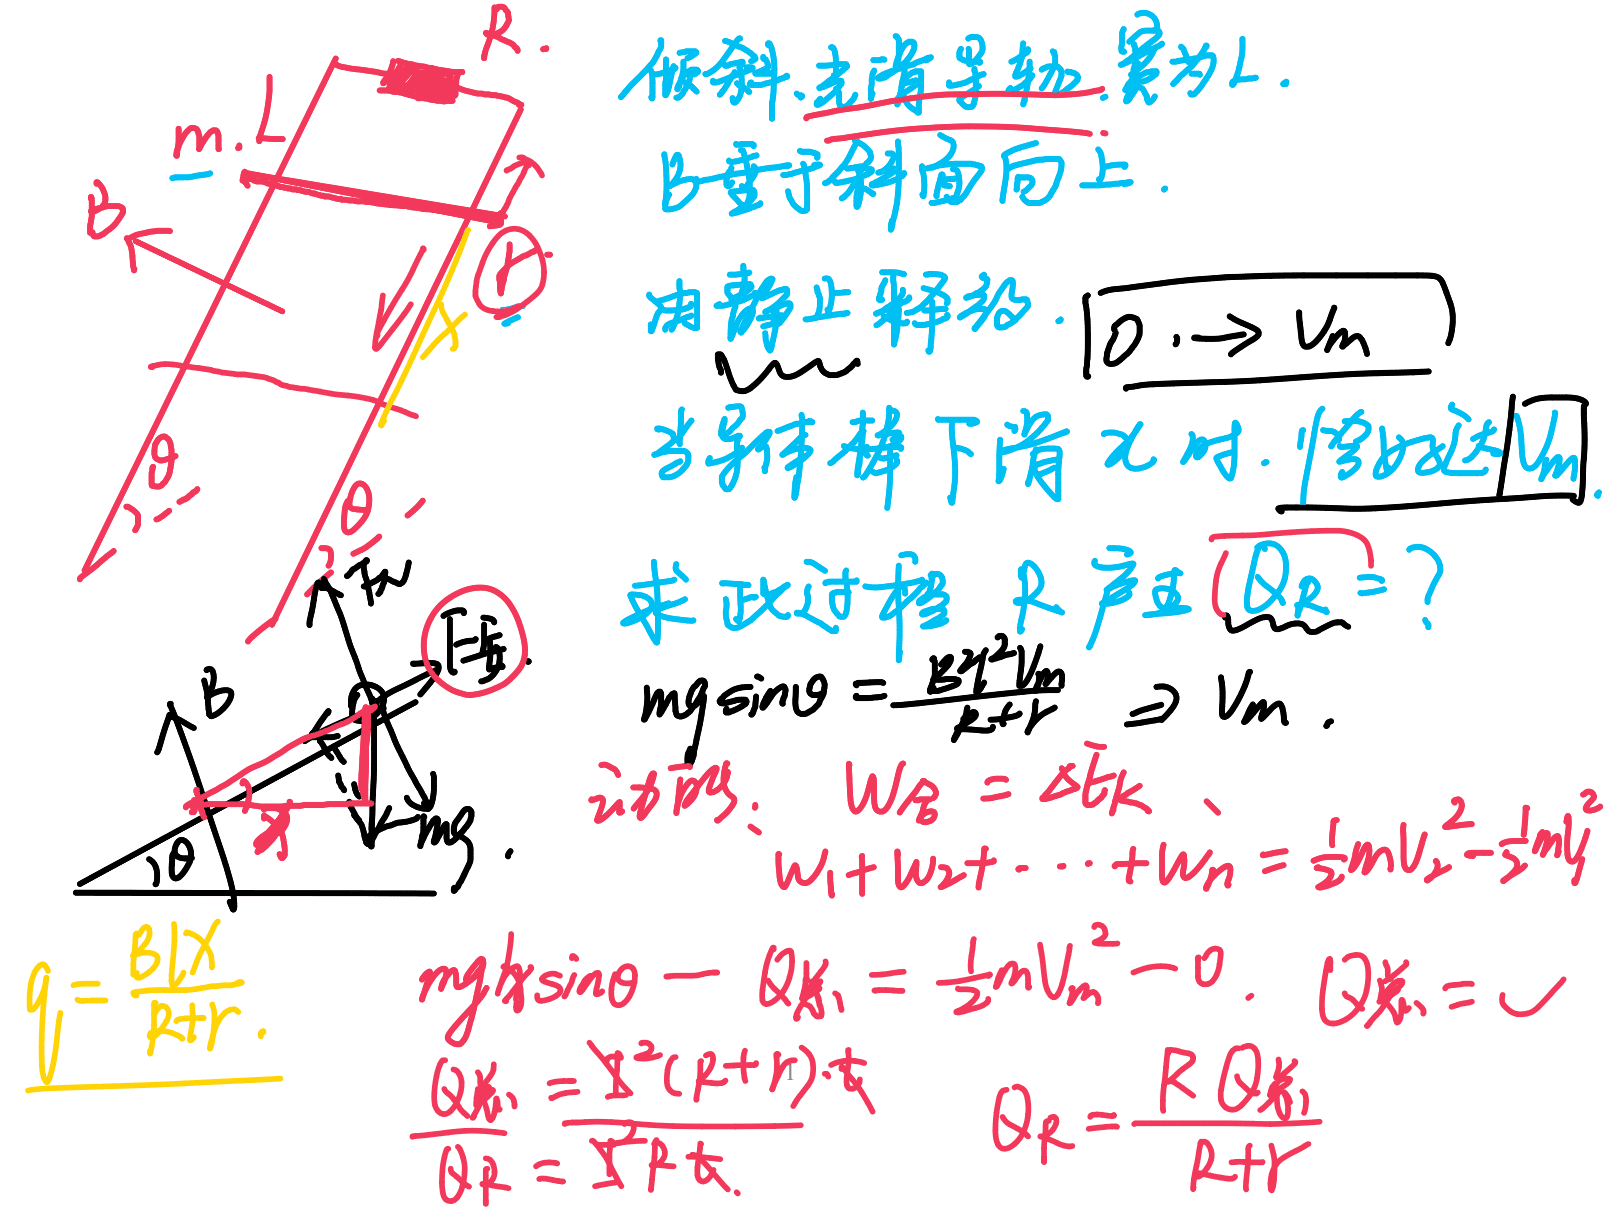 R.
m. L
B
r
x
θ
θ
倾斜、光滑导轨.宽为L.
B垂于斜面向上.
由静止释放. 0 → Vm
当导体棒下滑x时.恰好达Vm.
求此过程 R产生 QR=?
FN
F安.
B
mg.
θ
x
mgsinθ = B²L²Vm/(R+r) ⇒ Vm.
动能. W合 = ΔEk、
W1+W2+···+Wn = ½mV2² - ½mV1²
q = BLX/(R+r).
mgxsinθ - Q总 = ½mVm² - 0. Q总 = ✓
Q总/QR = I²(R+r)·t/I²Rt.
QR = RQ总/(R+r)